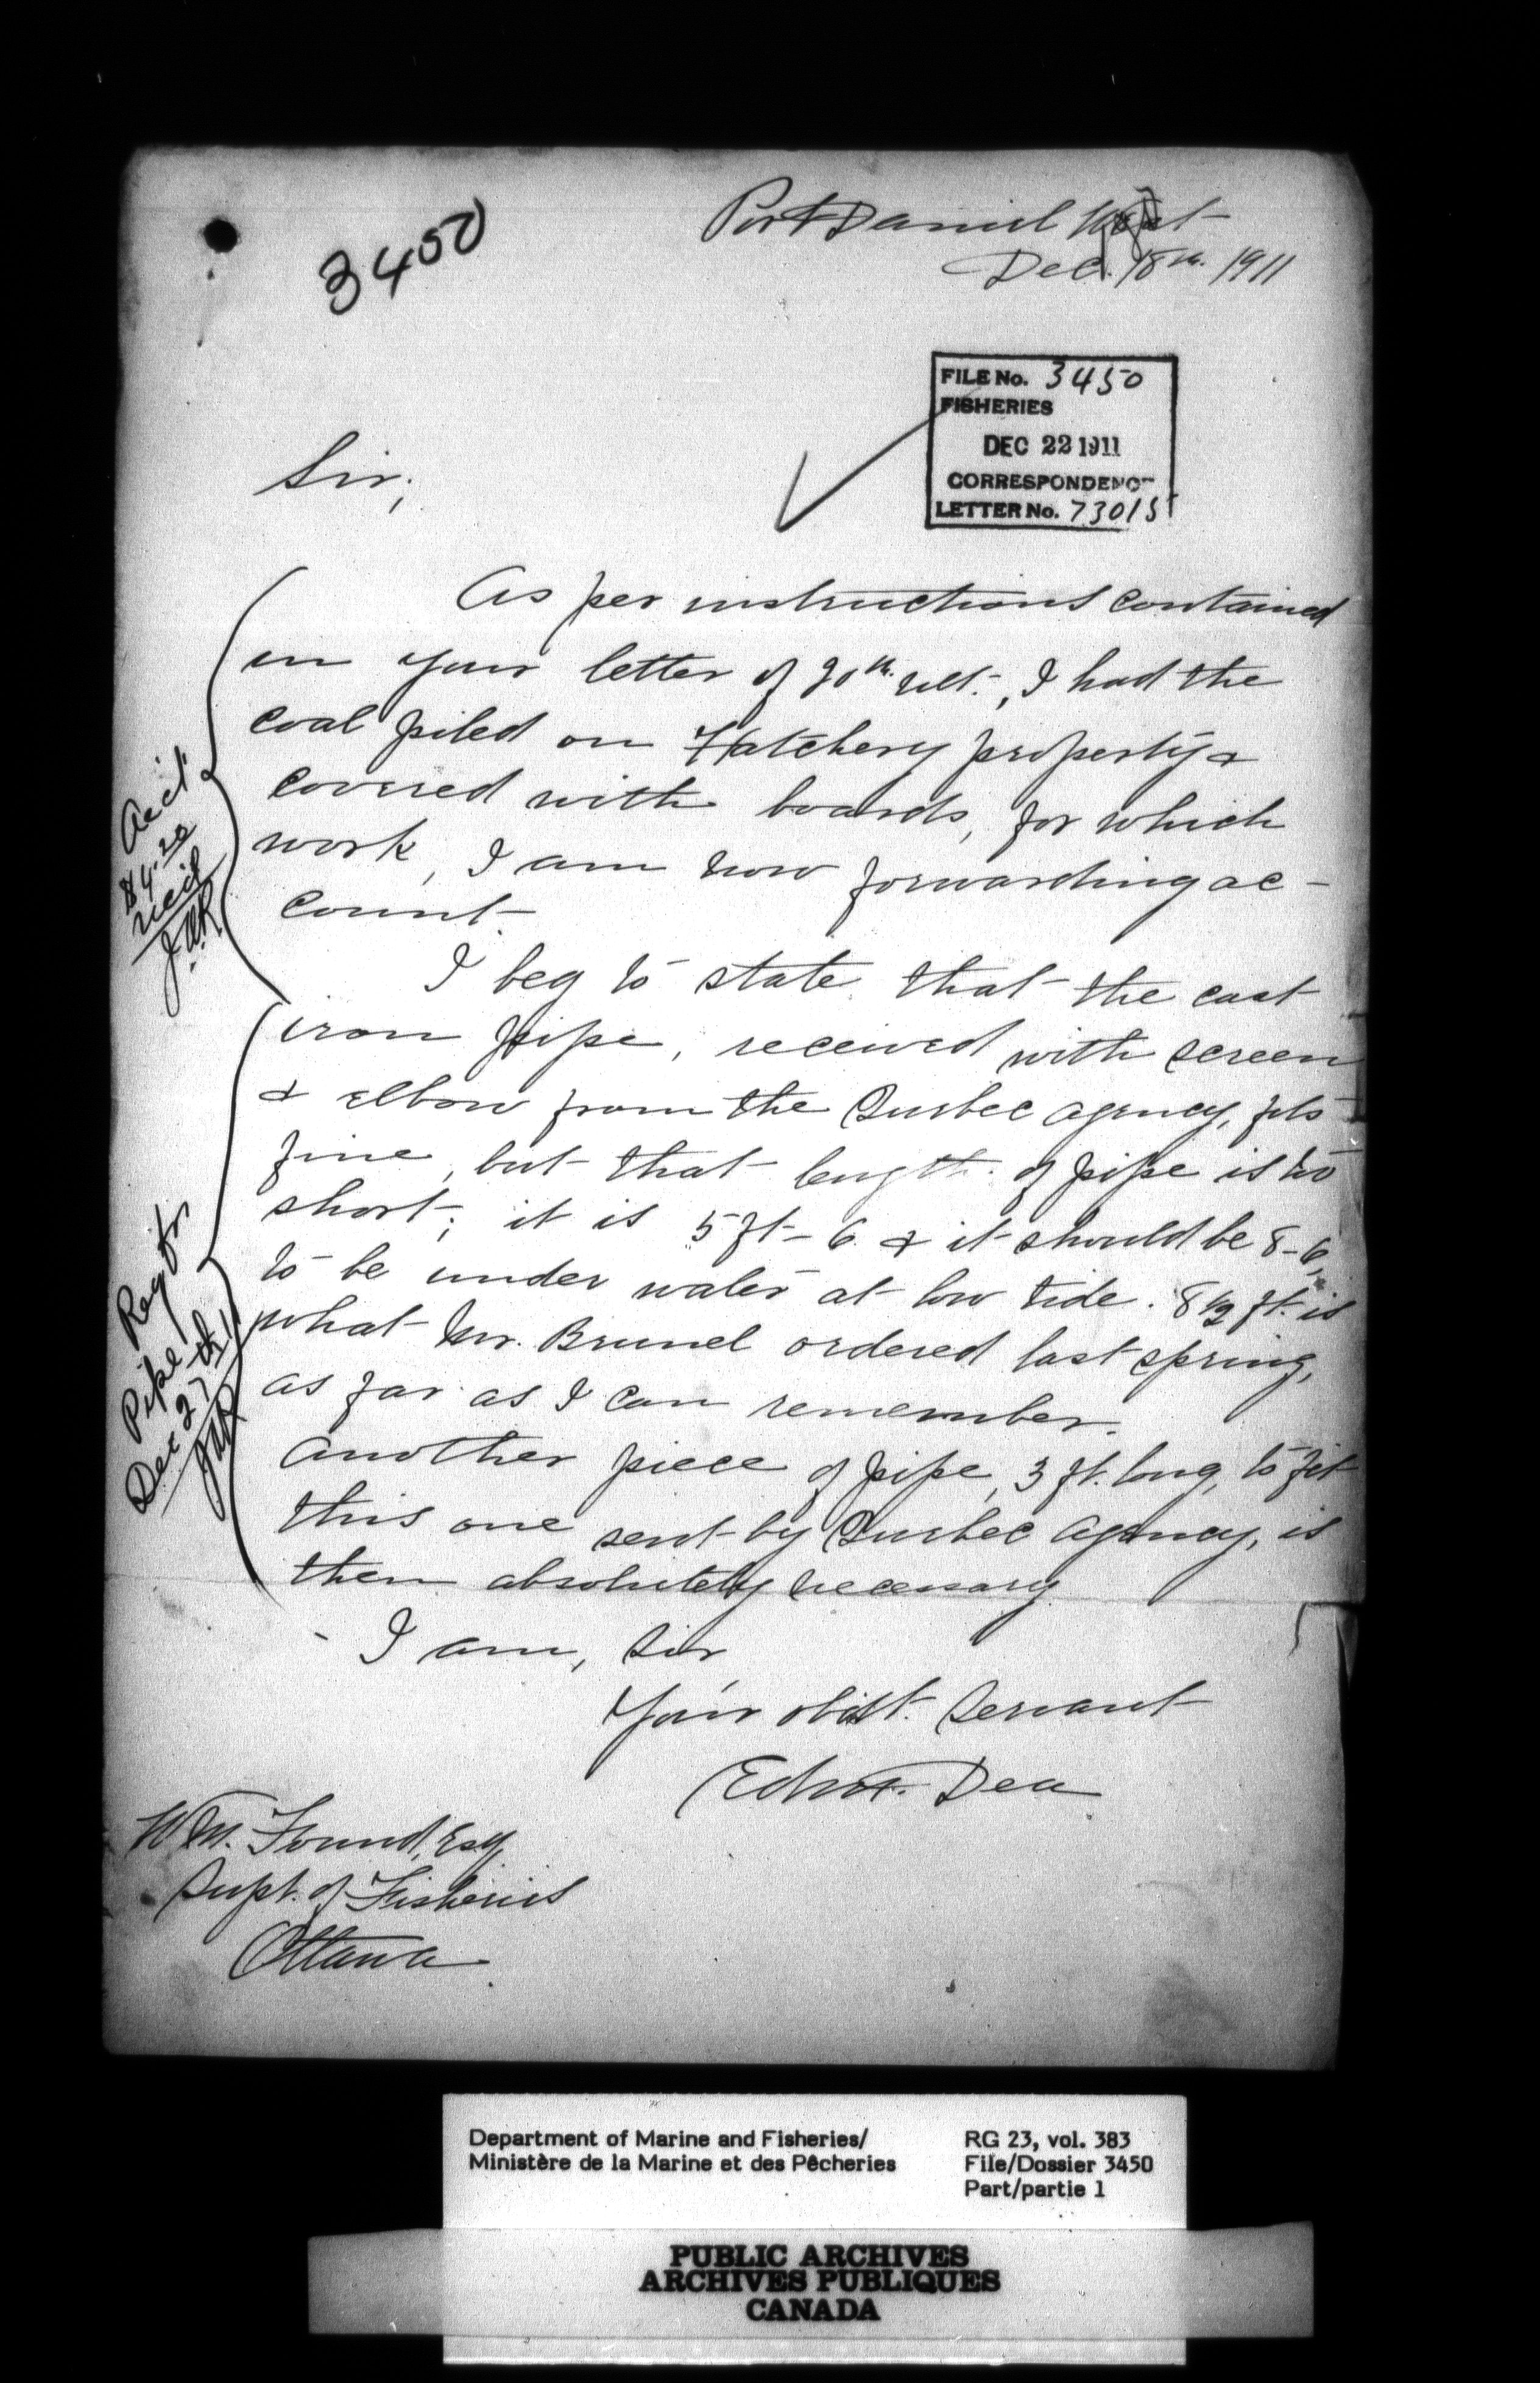 3450
Port Daniel West
Dec. 18th. 1911
FILE No. 3450
FISHERIES
DEC 22 1911
CORRESPONDENCE
LETTER No. 73015
Sir;
As per instructions contained
in your letter of 20th. ult., I had the
coal piled on Hatchery property &
covered with boards, for which
work, I am now forwarding ac-
count.
Acct
$4.20
recd
I beg to state that the cast
iron pipe, received with screen
& elbow from the Quebec agency, fits
fine, but that length of pipe is too
short; it is 5 ft - 6 & it should be 8-6,
to be under water at low tide. 8 1/2 ft. is
what Mr. Brunel ordered last spring,
as far as I can remember.
Another piece of pipe, 3 ft. long, to fit
this one sent by Quebec Agency, is
then absolutely necessary
Req for
Pipe
Dec 27th
I am, Sir,
Your obdt. Servant
Edw. Dea
Wm. Found, Esq
Supt. of Fisheries
Ottawa
Department of Marine and Fisheries/
Ministère de la Marine et des Pêcheries
RG 23, vol. 383
File/Dossier 3450
Part/partie 1
PUBLIC ARCHIVES
ARCHIVES PUBLIQUES
CANADA